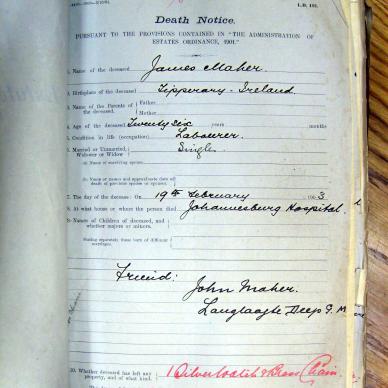 L.D. 101.
Death Notice.
PURSUANT TO THE PROVISIONS CONTAINED IN "THE ADMINISTRATION OF
ESTATES ORDINANCE, 1901."
1. Name of the deceased James Maher.
2. Birthplace of the deceased Tipperary - Ireland
3. Name of the Parents of the deceased Father
Mother
4. Age of the deceased Twenty six years months
5. Condition in life (occupation) Labourer.
6. Married or Unmarried, Widower or Widow Single.
(a) Name of surviving spouse
(b) Name or names and approximate date of death of previous spouse or spouses
7. The day of the decease: On 19th February 1903
8. At what house or where the person died Johannesburg Hospital.
9. Names of Children of deceased, and whether majors or minors.
Stating separately those born of different marriages.
Friend:
John Maher.
Langlaagte Deep G. M
10. Whether deceased has left any property, and of what kind. 1 Silver Watch & Brass Chain.